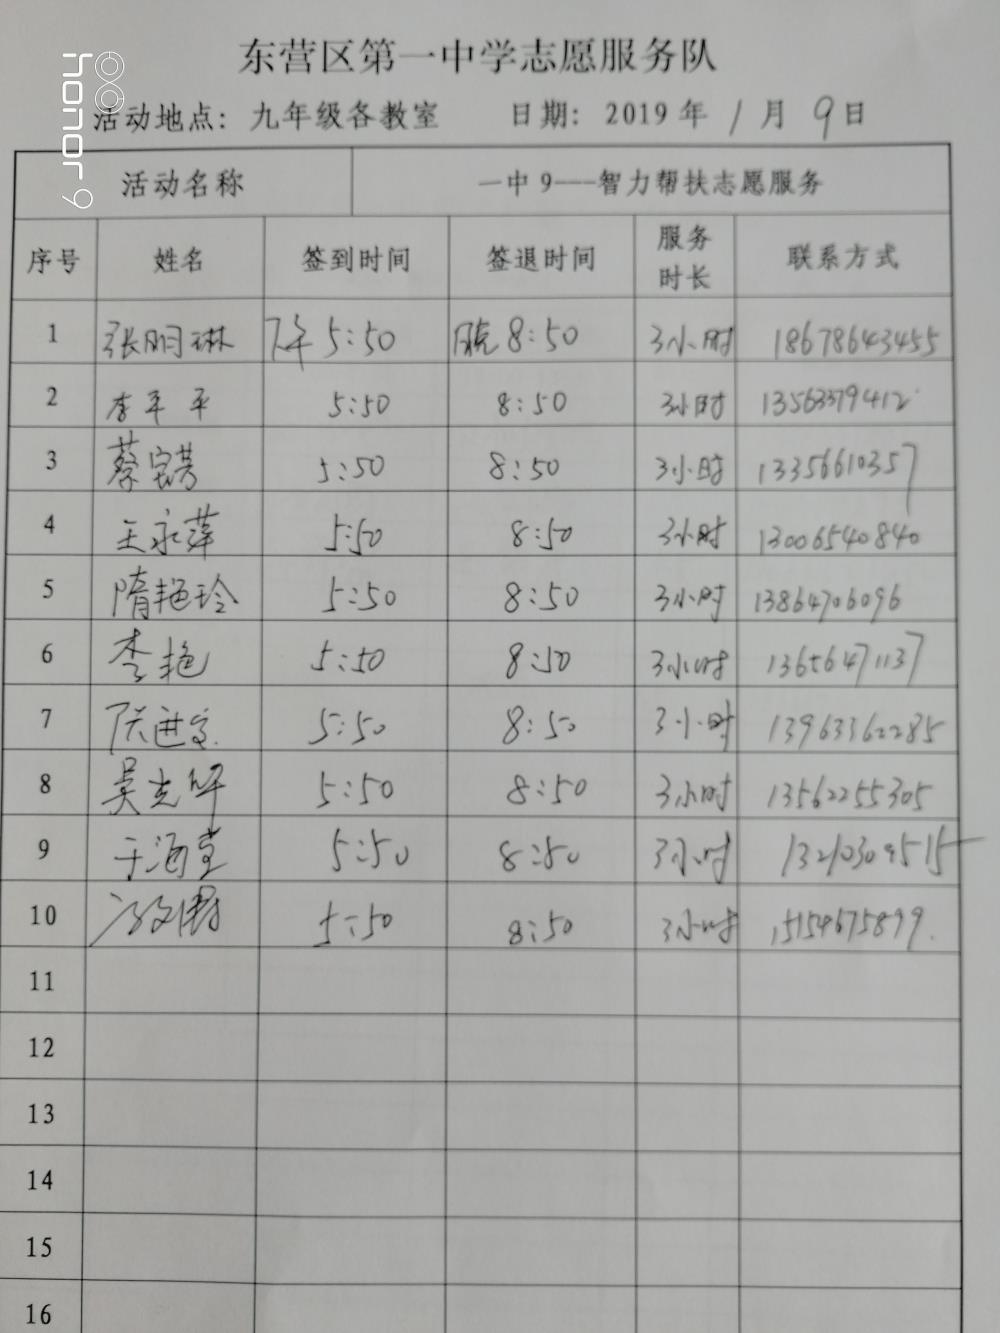 honor 9
东营区第一中学志愿服务队
活动地点：九年级各教室 日期：2019年1月9日
活动名称 一中9——智力帮扶志愿服务
序号 姓名 签到时间 签退时间 服务时长 联系方式
1 张明琳 下午5:50 晚8:50 3小时 18678643455
2 李平平 5:50 8:50 3小时 13563379412
3 蔡 5:50 8:50 3小时 13356610357
4 王永萍 5:50 8:50 3小时 13006540840
5 隋艳玲 5:50 8:50 3小时 13864706096
6 李艳 5:50 8:50 3小时 13656471137
7 5:50 8:50 3小时 13963362285
8 吴 5:50 8:50 3小时 13562255305
9 于海 5:50 8:50 3小时 13210309515
10 5:50 8:50 3小时 15154675899
11
12
13
14
15
16